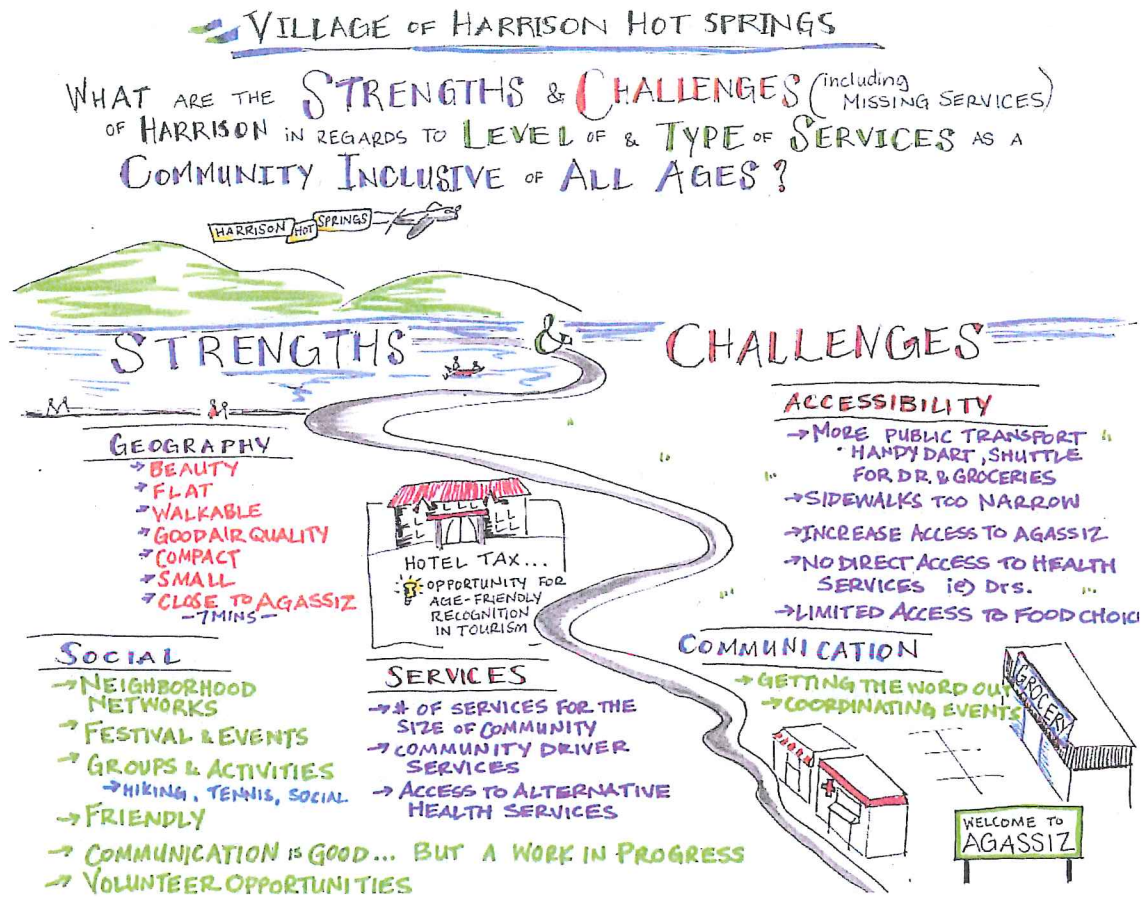 VILLAGE OF HARRISON HOT SPRINGS
WHAT ARE THE STRENGTHS & CHALLENGES (including MISSING SERVICES)
OF HARRISON IN REGARDS TO LEVEL OF & TYPE OF SERVICES AS A
COMMUNITY INCLUSIVE OF ALL AGES?
HARRISON HOT SPRINGS
STRENGTHS & CHALLENGES
GEOGRAPHY
→ BEAUTY
→ FLAT
→ WALKABLE
→ GOOD AIR QUALITY
→ COMPACT
→ SMALL
→ CLOSE TO AGASSIZ
- 7 MINS -
HOTEL TAX...
OPPORTUNITY FOR
AGE-FRIENDLY
RECOGNITION
IN TOURISM
SOCIAL
→ NEIGHBORHOOD
NETWORKS
→ FESTIVAL & EVENTS
→ GROUPS & ACTIVITIES
→ HIKING, TENNIS, SOCIAL
→ FRIENDLY
→ COMMUNICATION IS GOOD... BUT A WORK IN PROGRESS
→ VOLUNTEER OPPORTUNITIES
SERVICES
→ # OF SERVICES FOR THE
SIZE OF COMMUNITY
→ COMMUNITY DRIVER
SERVICES
→ ACCESS TO ALTERNATIVE
HEALTH SERVICES
ACCESSIBILITY
→ MORE PUBLIC TRANSPORT
• HANDY DART, SHUTTLE
FOR DR. & GROCERIES
→ SIDEWALKS TOO NARROW
→ INCREASE ACCESS TO AGASSIZ
→ NO DIRECT ACCESS TO HEALTH
SERVICES ie) Drs.
→ LIMITED ACCESS TO FOOD CHOIC
COMMUNICATION
→ GETTING THE WORD OUT
→ COORDINATING EVENTS
GROCERY
WELCOME TO
AGASSIZ